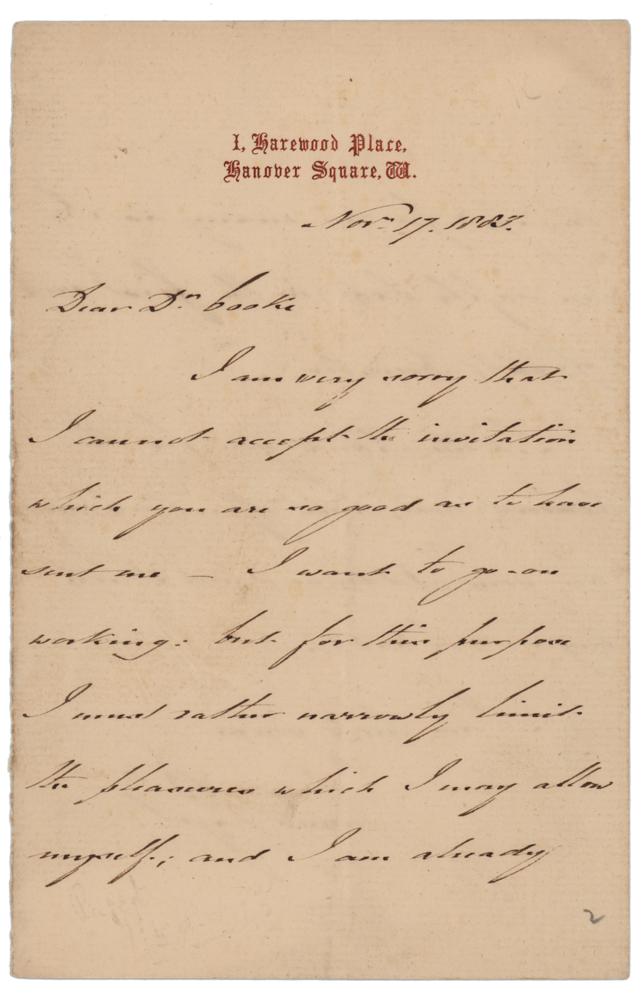 1, Harewood Place,
Hanover Square, W.
Novr 17. 1883.
Dear Dr Cooke
I am very sorry that
I cannot accept the invitation
which you are so good as to have
sent me – I want to go on
working: but for this purpose
I must rather narrowly limit
the pleasures which I may allow
myself; and I am already
2